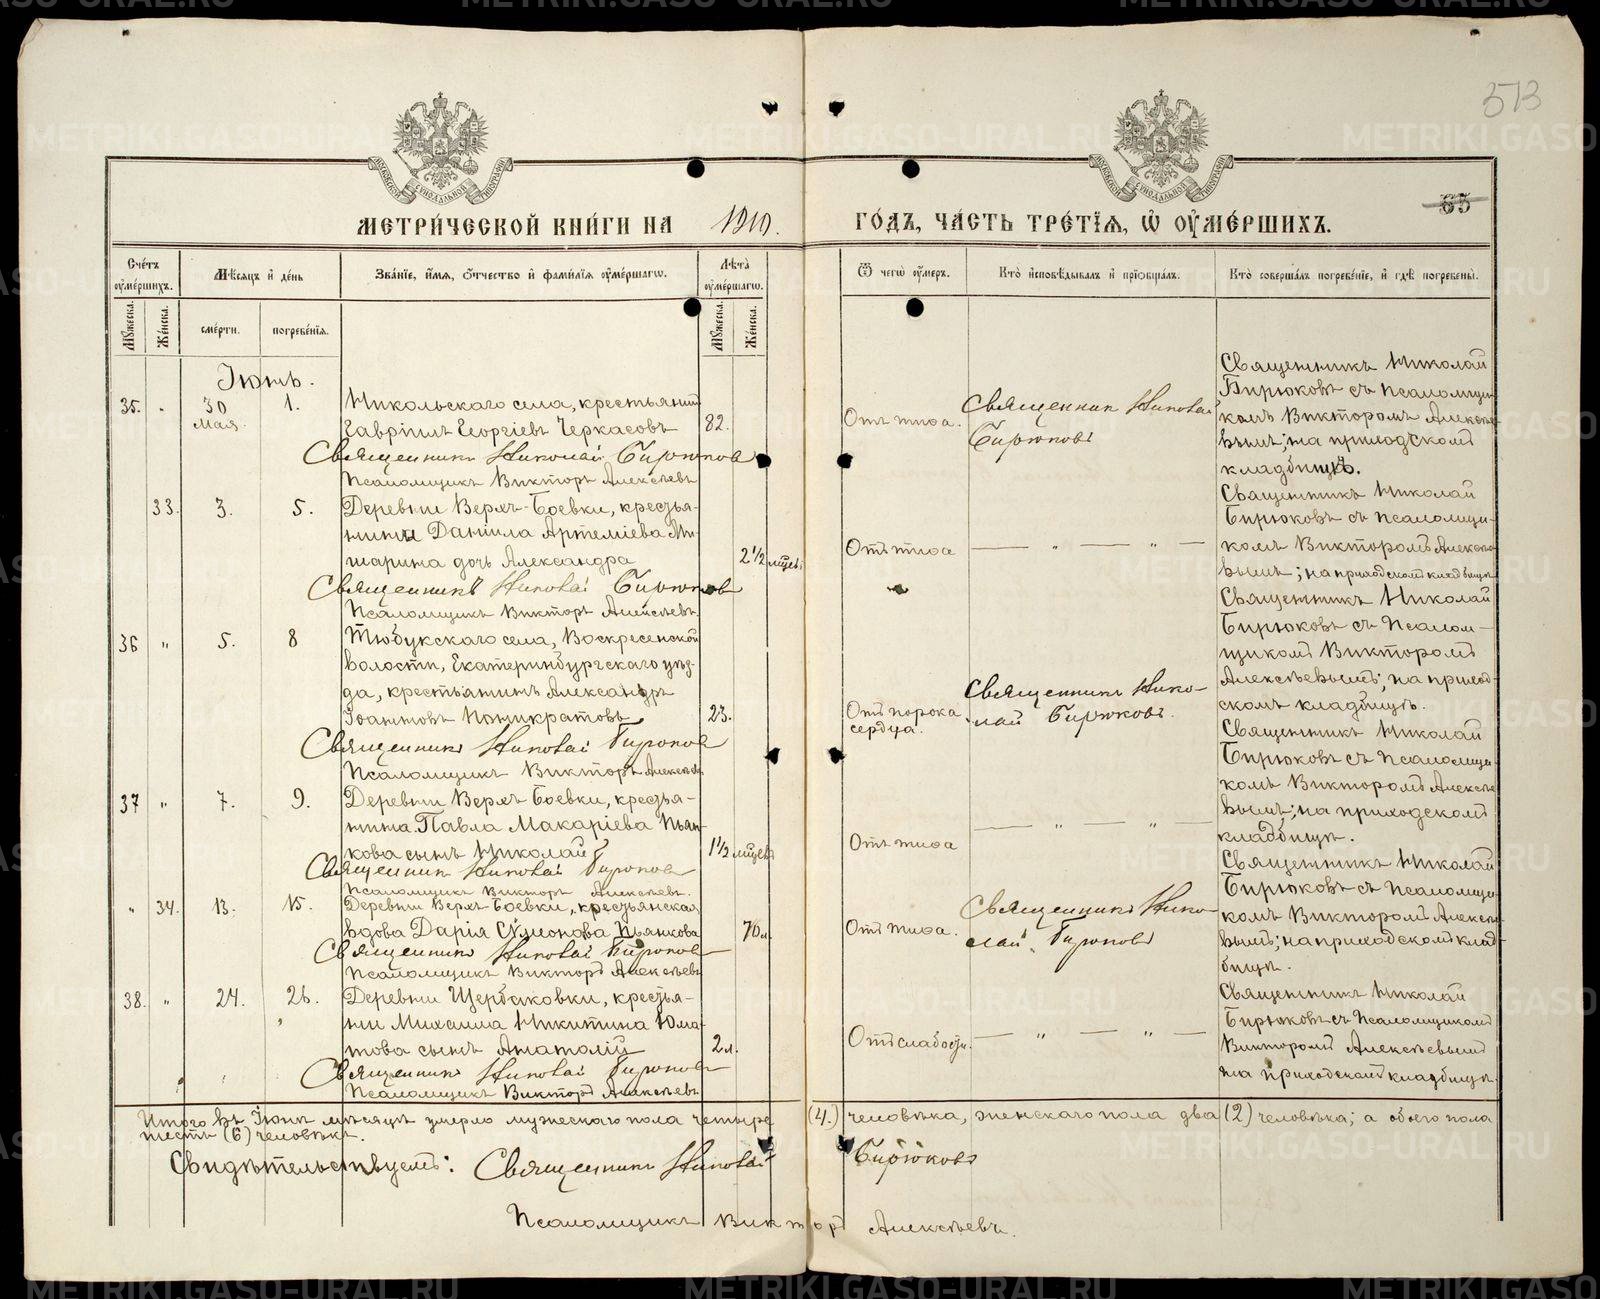 573
65
МЕТРИ́ЧЕСКОЙ КНИ́ГИ НА 1910.
ГО́ДЪ, ЧА́СТЬ ТРЕ́ТІЯ, Ѡ҆ ОУ҆МЕ́РШИХЪ.
Сче́тъ оу҆ме́ршихъ.
Мѣ́сяцъ и҆ де́нь
Зва́ніе, и҆́мя, ѻ҆́тчество и҆ фами́лія оу҆ме́ршагѡ.
Лѣ́та оу҆ме́ршагѡ.
Ѿ чегѡ̀ оу҆́меръ.
Кто̀ и҆сповѣ́дывалъ и҆ пріѡбща́лъ.
Кто̀ соверша́лъ погребе́ніе, и҆ гдѣ̀ погребены̀.
Мꙋ́жеска.
Же́нска.
сме́рти.
погребе́нія.
Мꙋ́жеска.
Же́нска.
Іюнь.
35. „ 30 Мая. 1.
Никольскаго села, крестьянин
Гавріилъ Георгіевъ Черкасовъ 82.
Священникъ Николай Бирюковъ
Псаломщикъ Викторъ Алексѣевъ
Отъ тифа.
Священник Николай
Бирюковъ
Священникъ Николай
Бирюковъ съ псаломщи-
комъ Викторомъ Алексѣе-
вымъ; на приходскомъ
кладбищѣ.
33. 3. 5.
Деревни Верхъ-Боевки, крестья-
нина Даніила Артеміева Ми-
шарина дочь Александра 2 1/2 мѣсяц.
Священникъ Николай Бирюков
Псаломщикъ Викторъ Алексѣевъ
Отъ тифа — „ — „ —
Священникъ Николай
Бирюковъ съ псаломщи-
комъ Викторомъ Алексѣе-
вымъ; на приходскомъ кладбищѣ
36 „ 5. 8
Тюбукскаго села, Воскресенской
волости, Екатеринбургскаго уѣз-
да, крестьянинъ Александръ
Іоанновъ Панкратовъ 23.
Священникъ Николай Бирюков
Псаломщикъ Викторъ Алексѣевъ
Отъ порока
сердца.
Священникъ Нико-
лай Бирюковъ.
Священникъ Николай
Бирюковъ съ Псалом-
щикомъ Викторомъ
Алексѣевымъ; на приход-
скомъ кладбищѣ.
37 „ 7. 9.
Деревни Верхъ Боевки, крестья-
нина Павла Макаріева Пьян-
кова сынъ Николай 1 1/2 мѣсяц.
Священник Николай Бирюков
Псаломщикъ Викторъ Алексѣевъ.
Отъ тифа — „ — „ —
Священникъ Николай
Бирюковъ съ Псаломщи-
комъ Викторомъ Алексѣе-
вымъ; на приходскомъ
кладбищѣ.
„ 34. 13. 15.
Деревни Верхъ-Боевки, крестьянская
вдова Дарія Сѵмонова Пьянкова 70 л.
Священникъ Николай Бирюков
Псаломщикъ Викторъ Алексѣевъ
Отъ тифа.
Священникъ Нико-
лай Бирюковъ
Священникъ Николай
Бирюковъ съ Псаломщи-
комъ Викторомъ Алексѣе-
вымъ; на приходскомъ клад-
бищѣ.
38. „ 24. 26.
Деревни Щербаковки, крестья-
нин Михаила Никитина Юма-
това сынъ Анатолій 2 л.
Священникъ Николай Бирюков
Псаломщикъ Викторъ Алексѣевъ
Отъ слабости. — „ — „ —
Священникъ Николай
Бирюковъ съ Псаломщикомъ
Викторомъ Алексѣевымъ
на приходскомъ кладбищѣ.
Итого въ Іюнѣ мѣсяцѣ умерло мужескаго пола четыре (4.) человѣка, женскаго пола два (2) человѣка; а обоего пола
шесть (6) человѣкъ.
Свидѣтельствуемъ: Священникъ Николай Бирюковъ
Псаломщикъ Викторъ Алексѣевъ.
METRIKI.GASO-URAL.RU